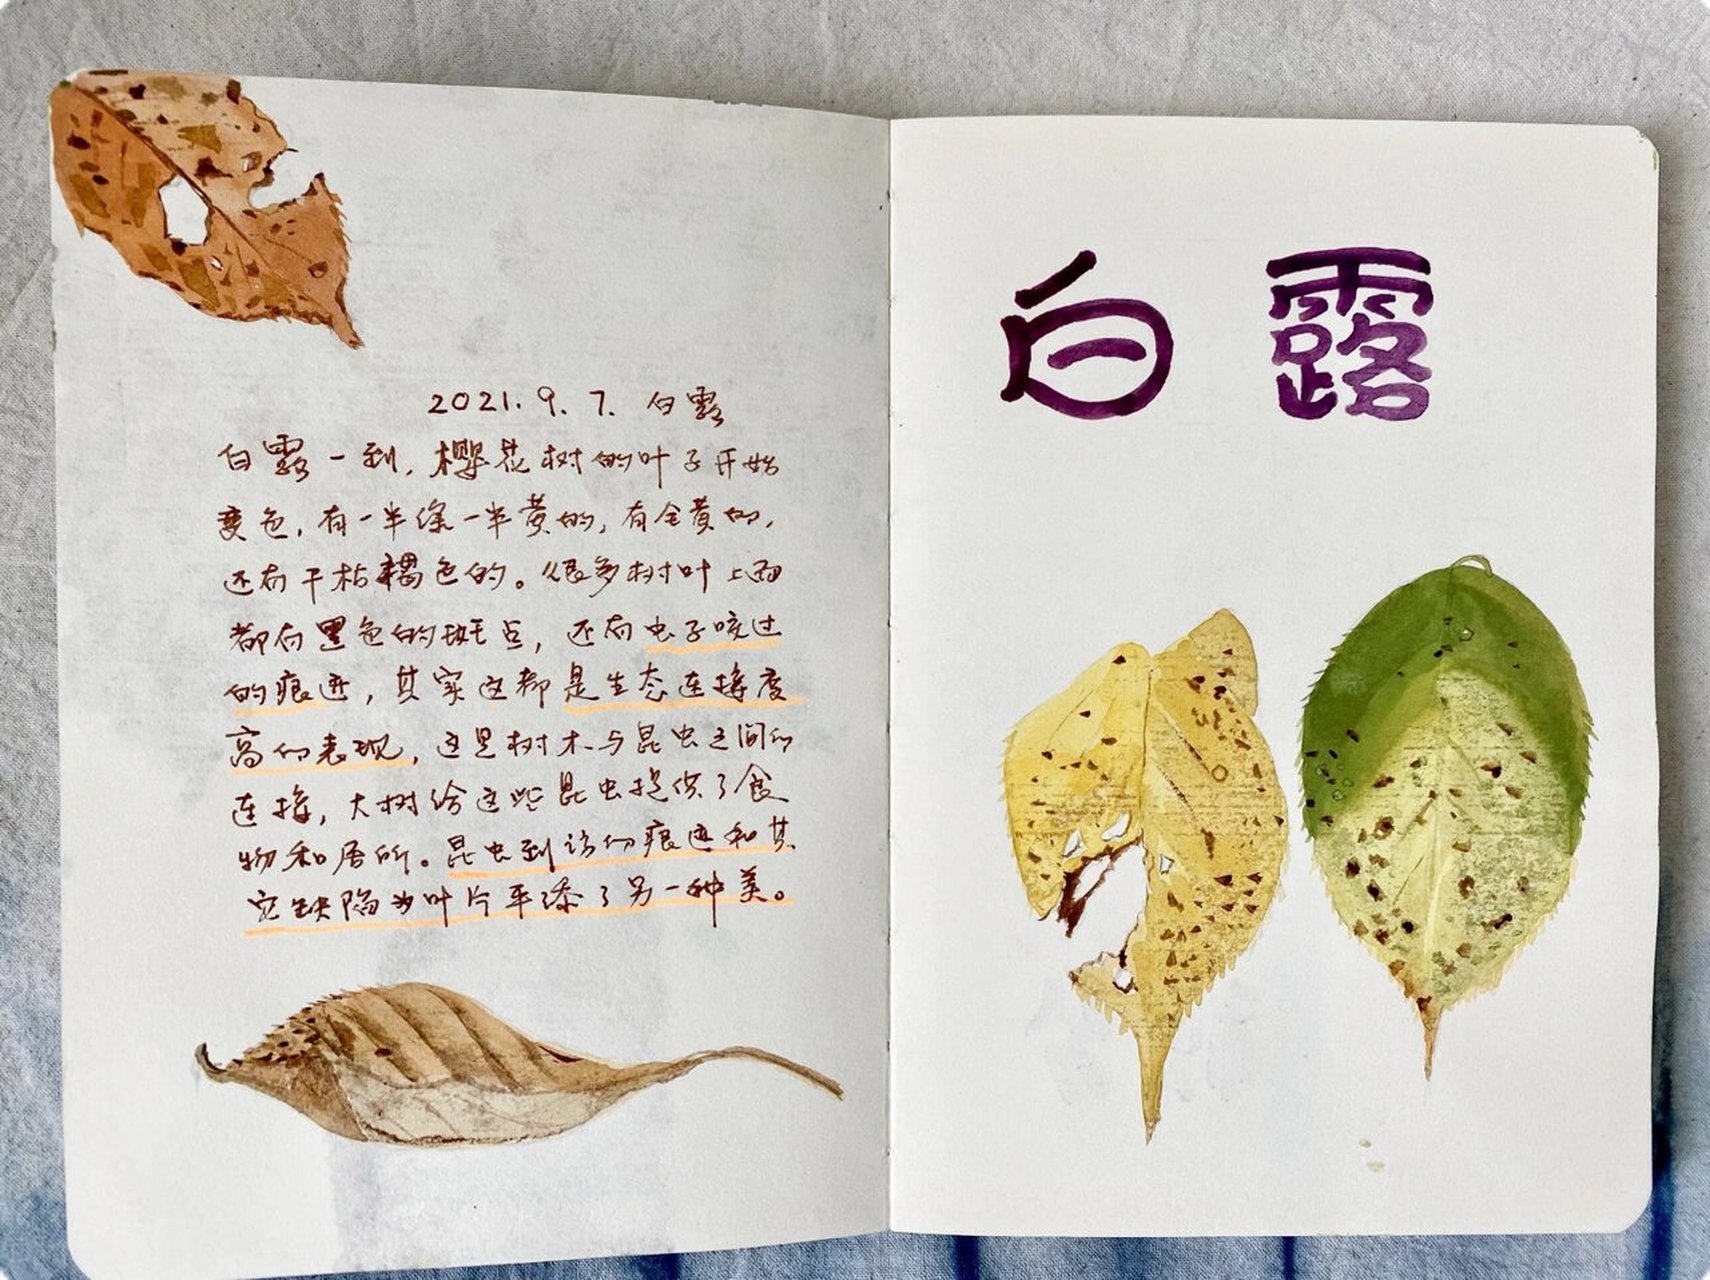 2021.9.7. 白露
白露一到，樱花树的叶子开始
变色，有一半绿一半黄的，有全黄的，
还有干枯褐色的。很多树叶上面
都有黑色的斑点，还有虫子咬过
的痕迹，其实这都是生态连接度
高的表现，这是树木与昆虫之间的
连接，大树给这些昆虫提供了食
物和居所。昆虫到访的痕迹和其
它缺陷为叶片平添了另一种美。
白露